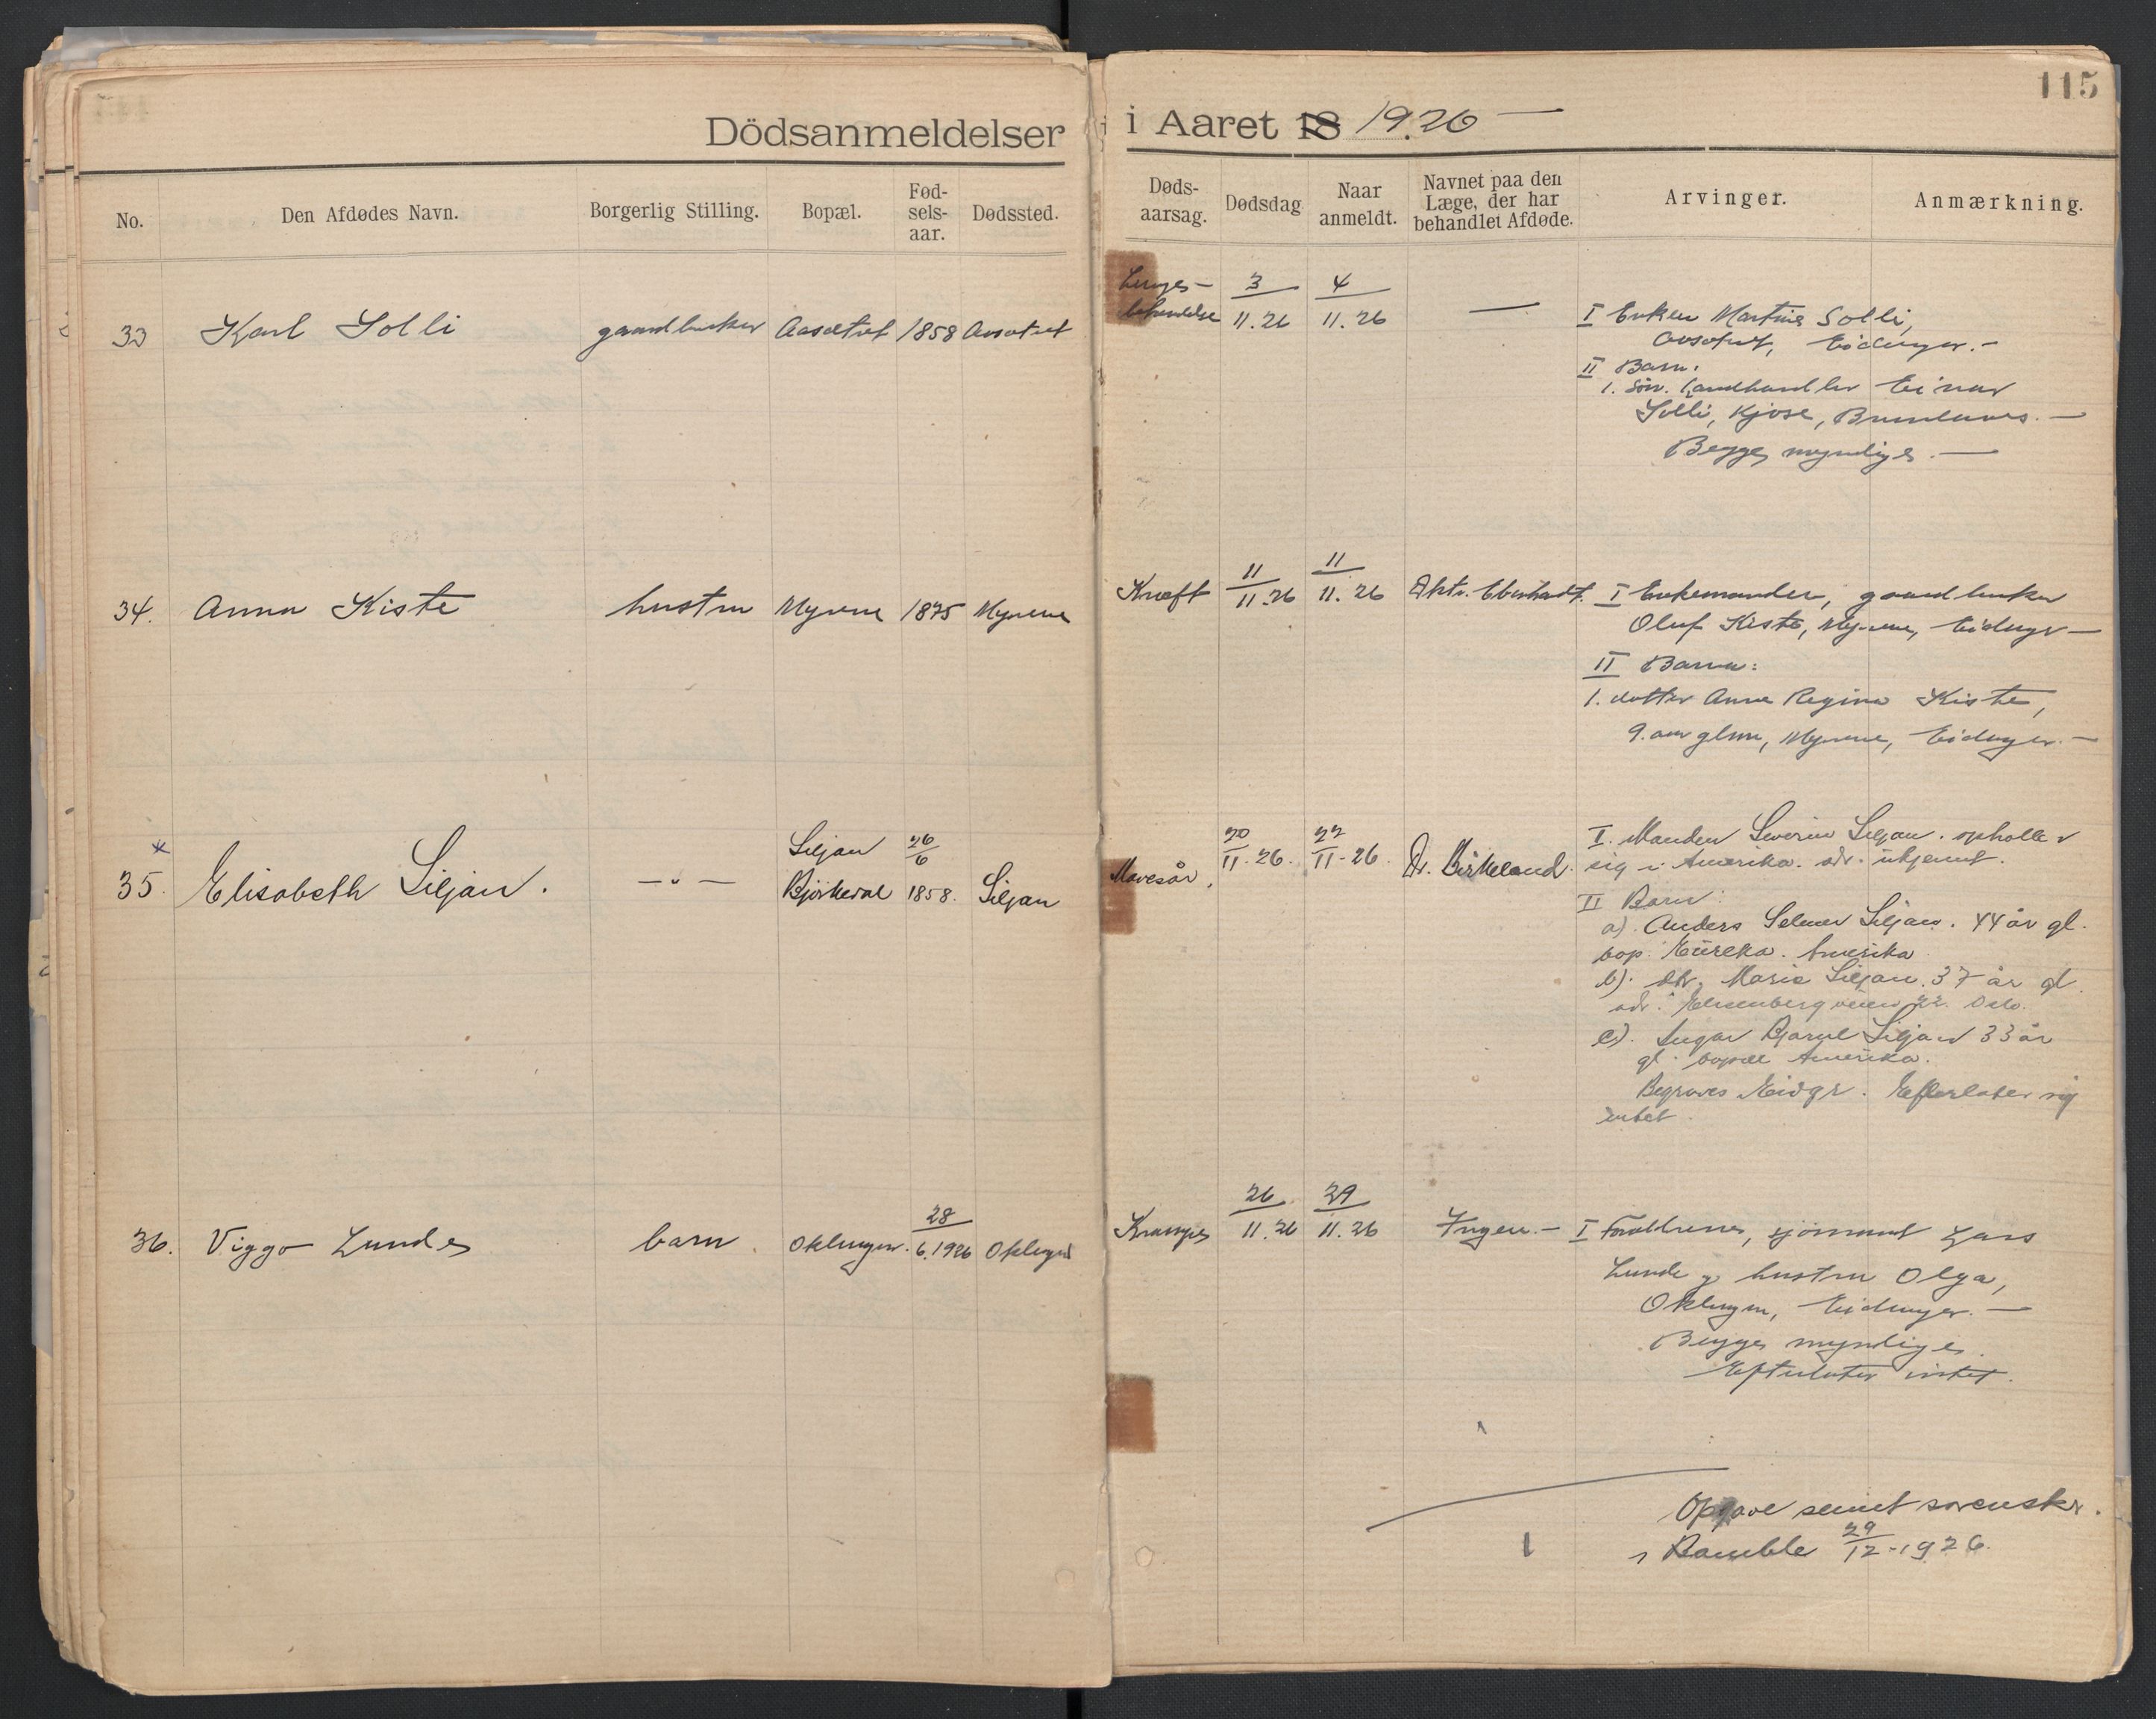 115
Dödsanmeldelser i Aaret 18 1926 —
No.
Den Afdødes Navn.
Borgerlig Stilling.
Bopæl.
Fød-
sels-
aar.
Dødssted.
Døds-
aarsag.
Dødsdag
Naar
anmeldt.
Navnet paa den
Læge, der har
behandlet Afdøde.
Arvinger.
Anmærkning.
33 Karl Solli gaardbruker 1858
3
11.26
4
11.26
—
I Enken Martine Solli,
Eidanger. —
II Barn:
1. Søn. Landhandler Einar
Solli, Kjose, Brunlanes. —
Begge myndige. —
34. Anna Kiste hustru Myrene 1875 Myrene
Kræft
11
11.26
11
11.26
I Enkemanden, gaardbruker
Oluf Kiste, Myrene, Eidanger —
II Barn:
1. datter Anna Regine Kiste,
9 aar glm, Myrene, Eidanger. —
35. Elisabeth Siljan. — " —
Siljan
Bjørkedal
26
6
1858.
Siljan
Mavesår,
20
11.26.
22
11-26.
Dr. Birkeland.
I. Manden Severin Siljan. opholder
sig i Amerika. adr. ukjennt.
II Barn:
a). Anders Selmer Siljan. 44 år gl.
bop. Eureka. Amerika
b). Marie Siljan. 37 år gl.
adr: 22. Oslo.
c). Bjarne Siljan 33 år
gl. bopæl Amerika.
Begraves Eidgr. Efterlater sig
intet.
36. Viggo Lunde barn
28
6.1926
Krampe
26
11.26
29
11.26
Ingen. —
I Forældrene, sjømand Lars
Lunde og hustru Olga,
Eidanger. —
Begge myndige.
Efterlater intet.
Opgave sennt sorenskr.
i Bamble 29
12-1926.